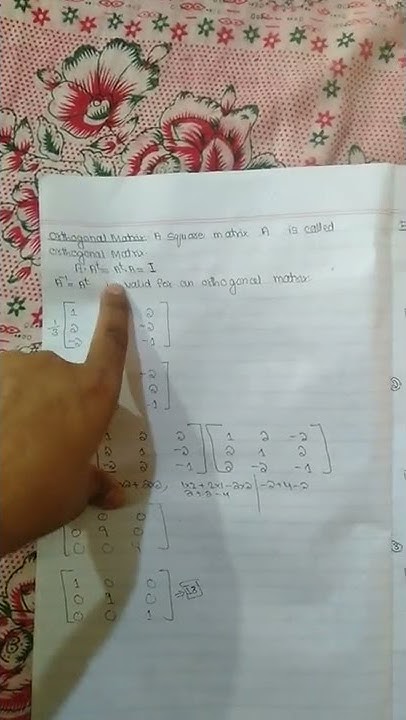 Orthogonal Matrix: A square matrix A is called
Orthogonal Matrix
A·Aᵗ = Aᵗ·A = I
A⁻¹ = Aᵗ valid for an orthogonal matrix.
1/3 [ 1 2 ]
[ 2 -2 ]
[ -2 -1 ]
-2 ]
2 ]
-1 ]
1 2 2 ] [ 1 2 -2 ]
2 1 -2 ] [ 2 1 2 ]
-2 2 -1 ] [ 2 -2 -1 ]
x2 + 2x2, 1x2 + 2x1 - 2x2 | -2+4-2
2+2-4
0 0 ]
0 9 0 ]
0 0 9 ]
[ 1 0 0 ]
[ 0 1 0 ] → I3
[ 0 0 1 ]